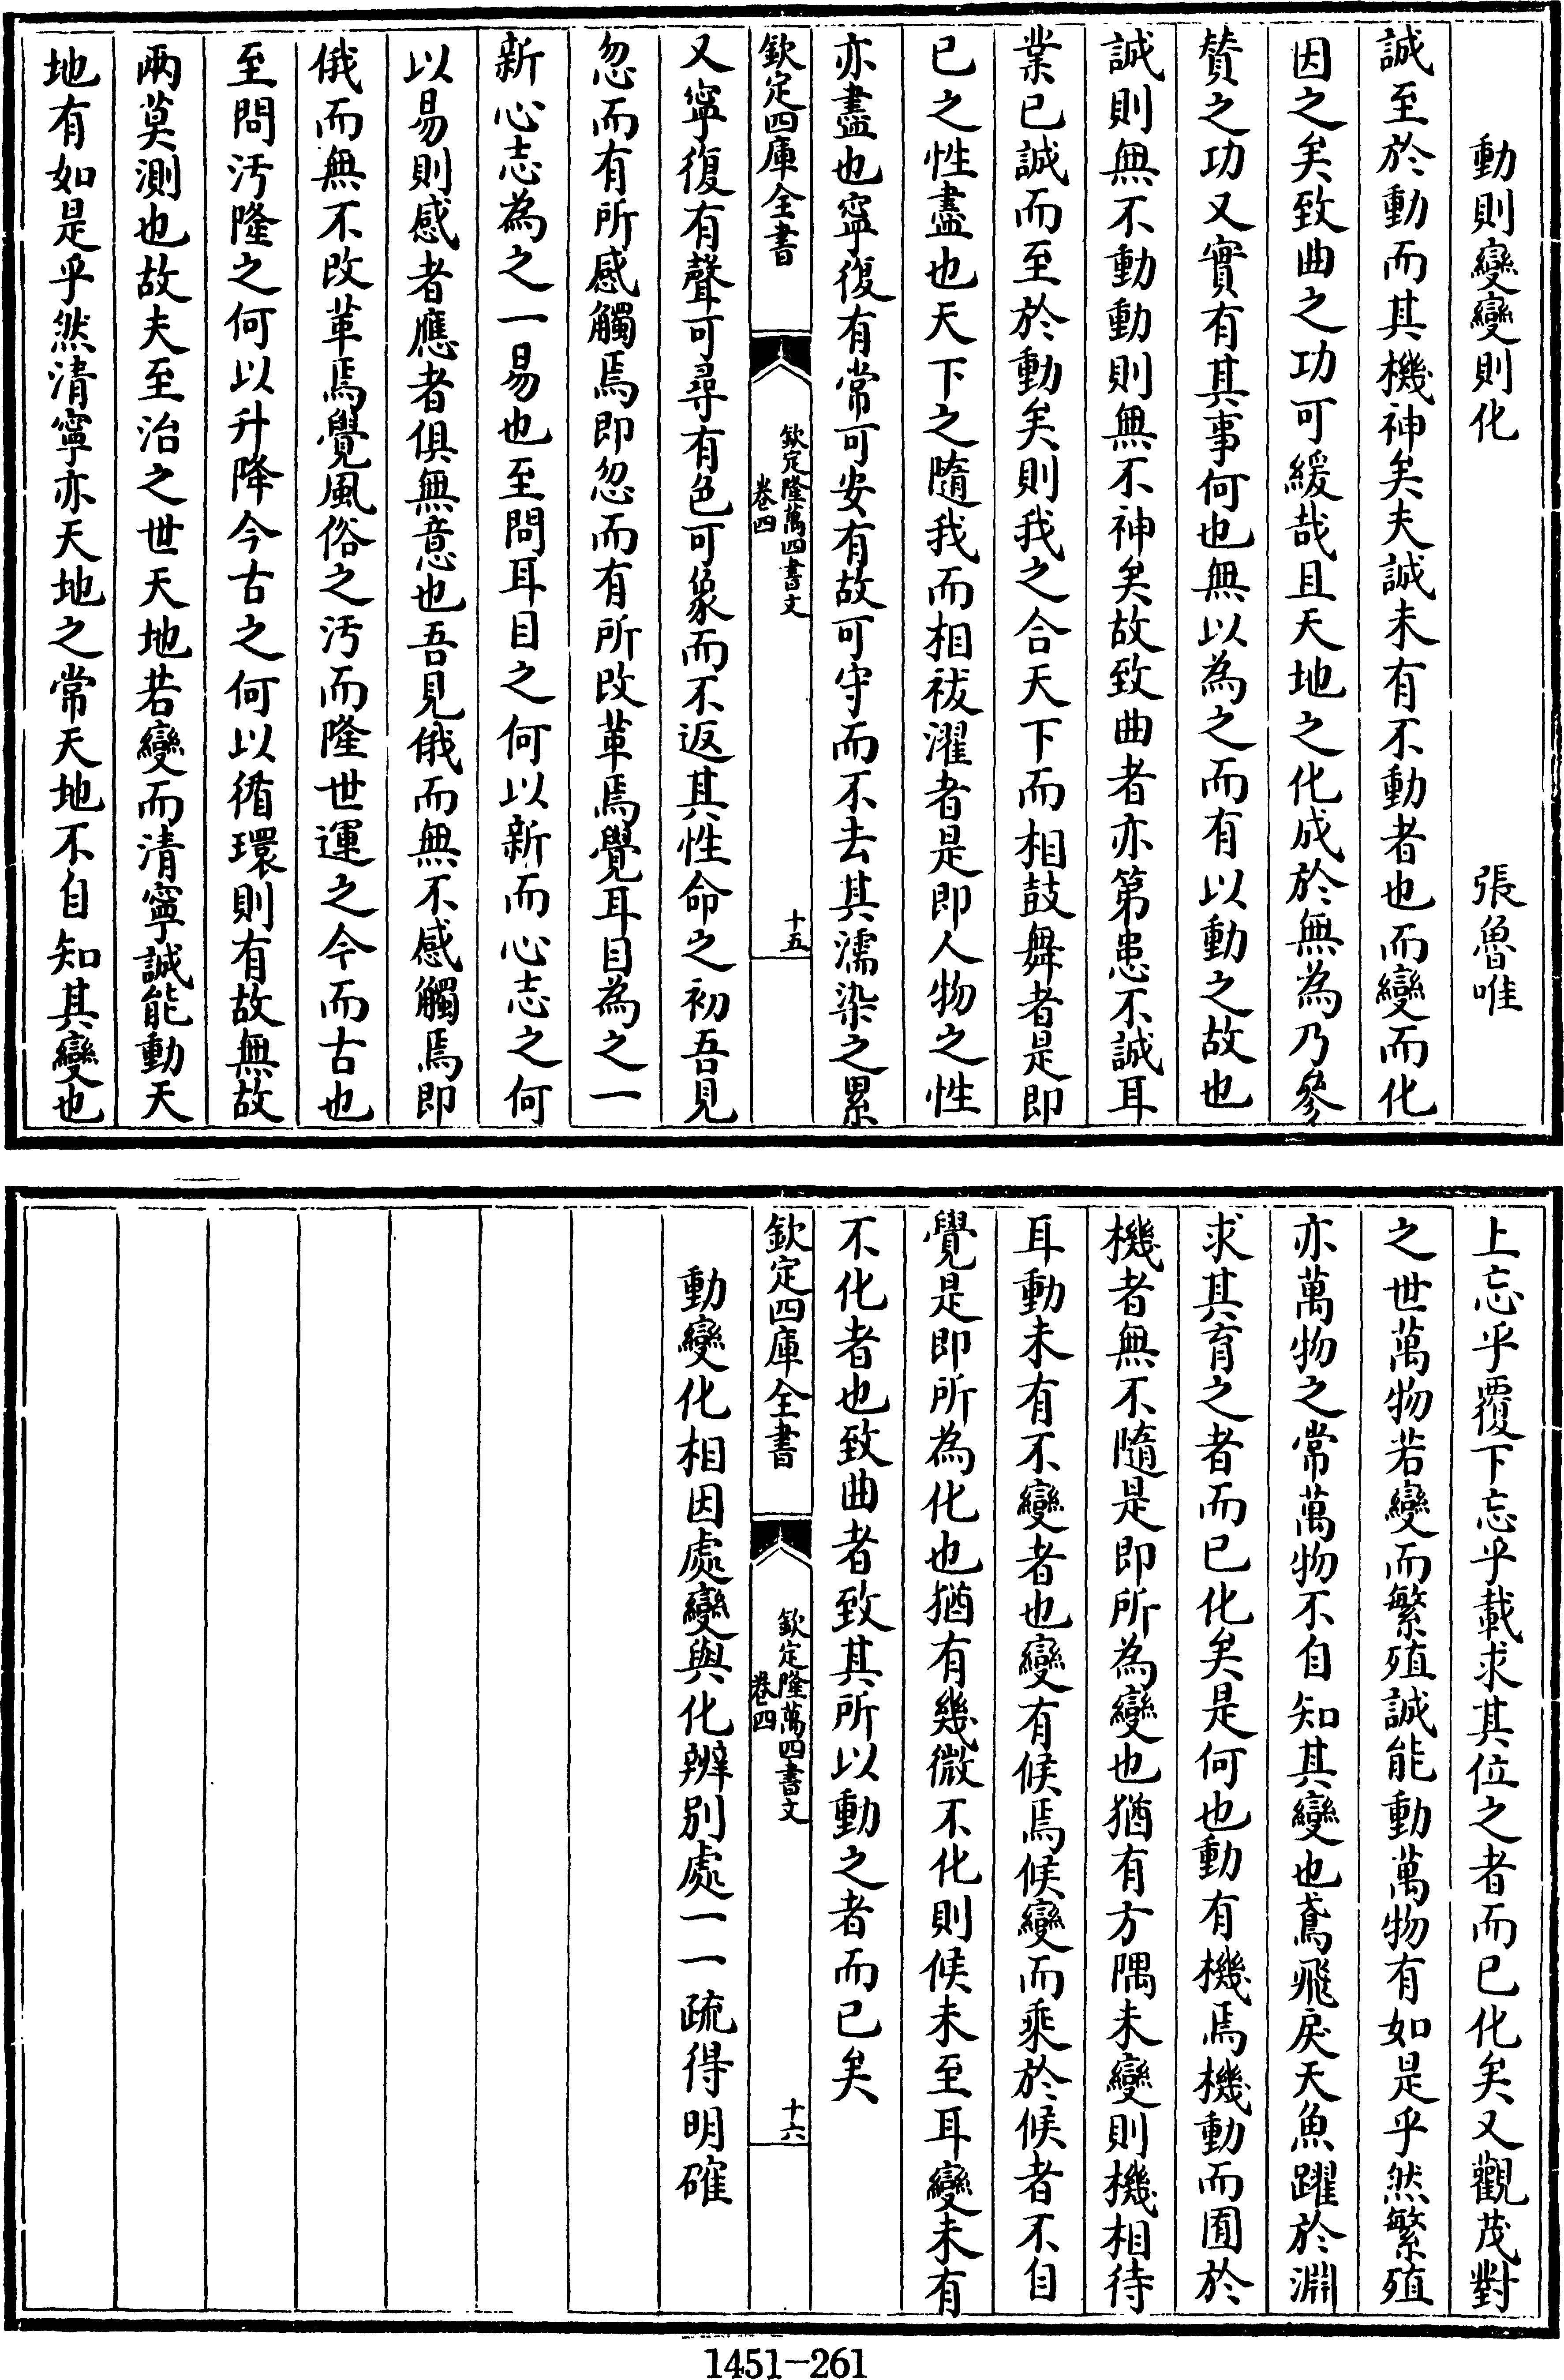 動則變變則化　張魯唯
誠至於動而其機神矣夫誠未有不動者也而變而化
因之矣致曲之功可緩哉且天地之化成於無為乃參
贊之功又實有其事何也無以為之而有以動之故也
誠則無不動動則無不神矣故致曲者亦第患不誠耳
業已誠而至於動矣則我之合天下而相鼓舞者是即
已之性盡也天下之隨我而相祓濯者是即人物之性
亦盡也寧復有常可安有故可守而不去其濡染之累
欽定四庫全書
欽定隆萬四書文
卷四
十五
又寧復有聲可尋有色可象而不返其性命之初吾見
忽而有所感觸焉即忽而有所改革焉覺耳目為之一
新心志為之一易也至問耳目之何以新而心志之何
以易則感者應者俱無意也吾見俄而無不感觸焉即
俄而無不改革焉覺風俗之汚而隆世運之今而古也
至問汚隆之何以升降今古之何以循環則有故無故
兩莫測也故夫至治之世天地若變而清寧誠能動天
地有如是乎然清寧亦天地之常天地不自知其變也
上忘乎覆下忘乎載求其位之者而已化矣又觀茂對
之世萬物若變而繁殖誠能動萬物有如是乎然繁殖
亦萬物之常萬物不自知其變也鳶飛戾天魚躍於淵
求其育之者而已化矣是何也動有機焉機動而囿於
機者無不隨是即所為變也猶有方隅未變則機相待
耳動未有不變者也變有候焉候變而乘於候者不自
覺是即所為化也猶有幾微不化則候未至耳變未有
不化者也致曲者致其所以動之者而已矣
欽定四庫全書
欽定隆萬四書文
卷四
十六
動變化相因處變與化辨別處一一疏得明確
1451-261